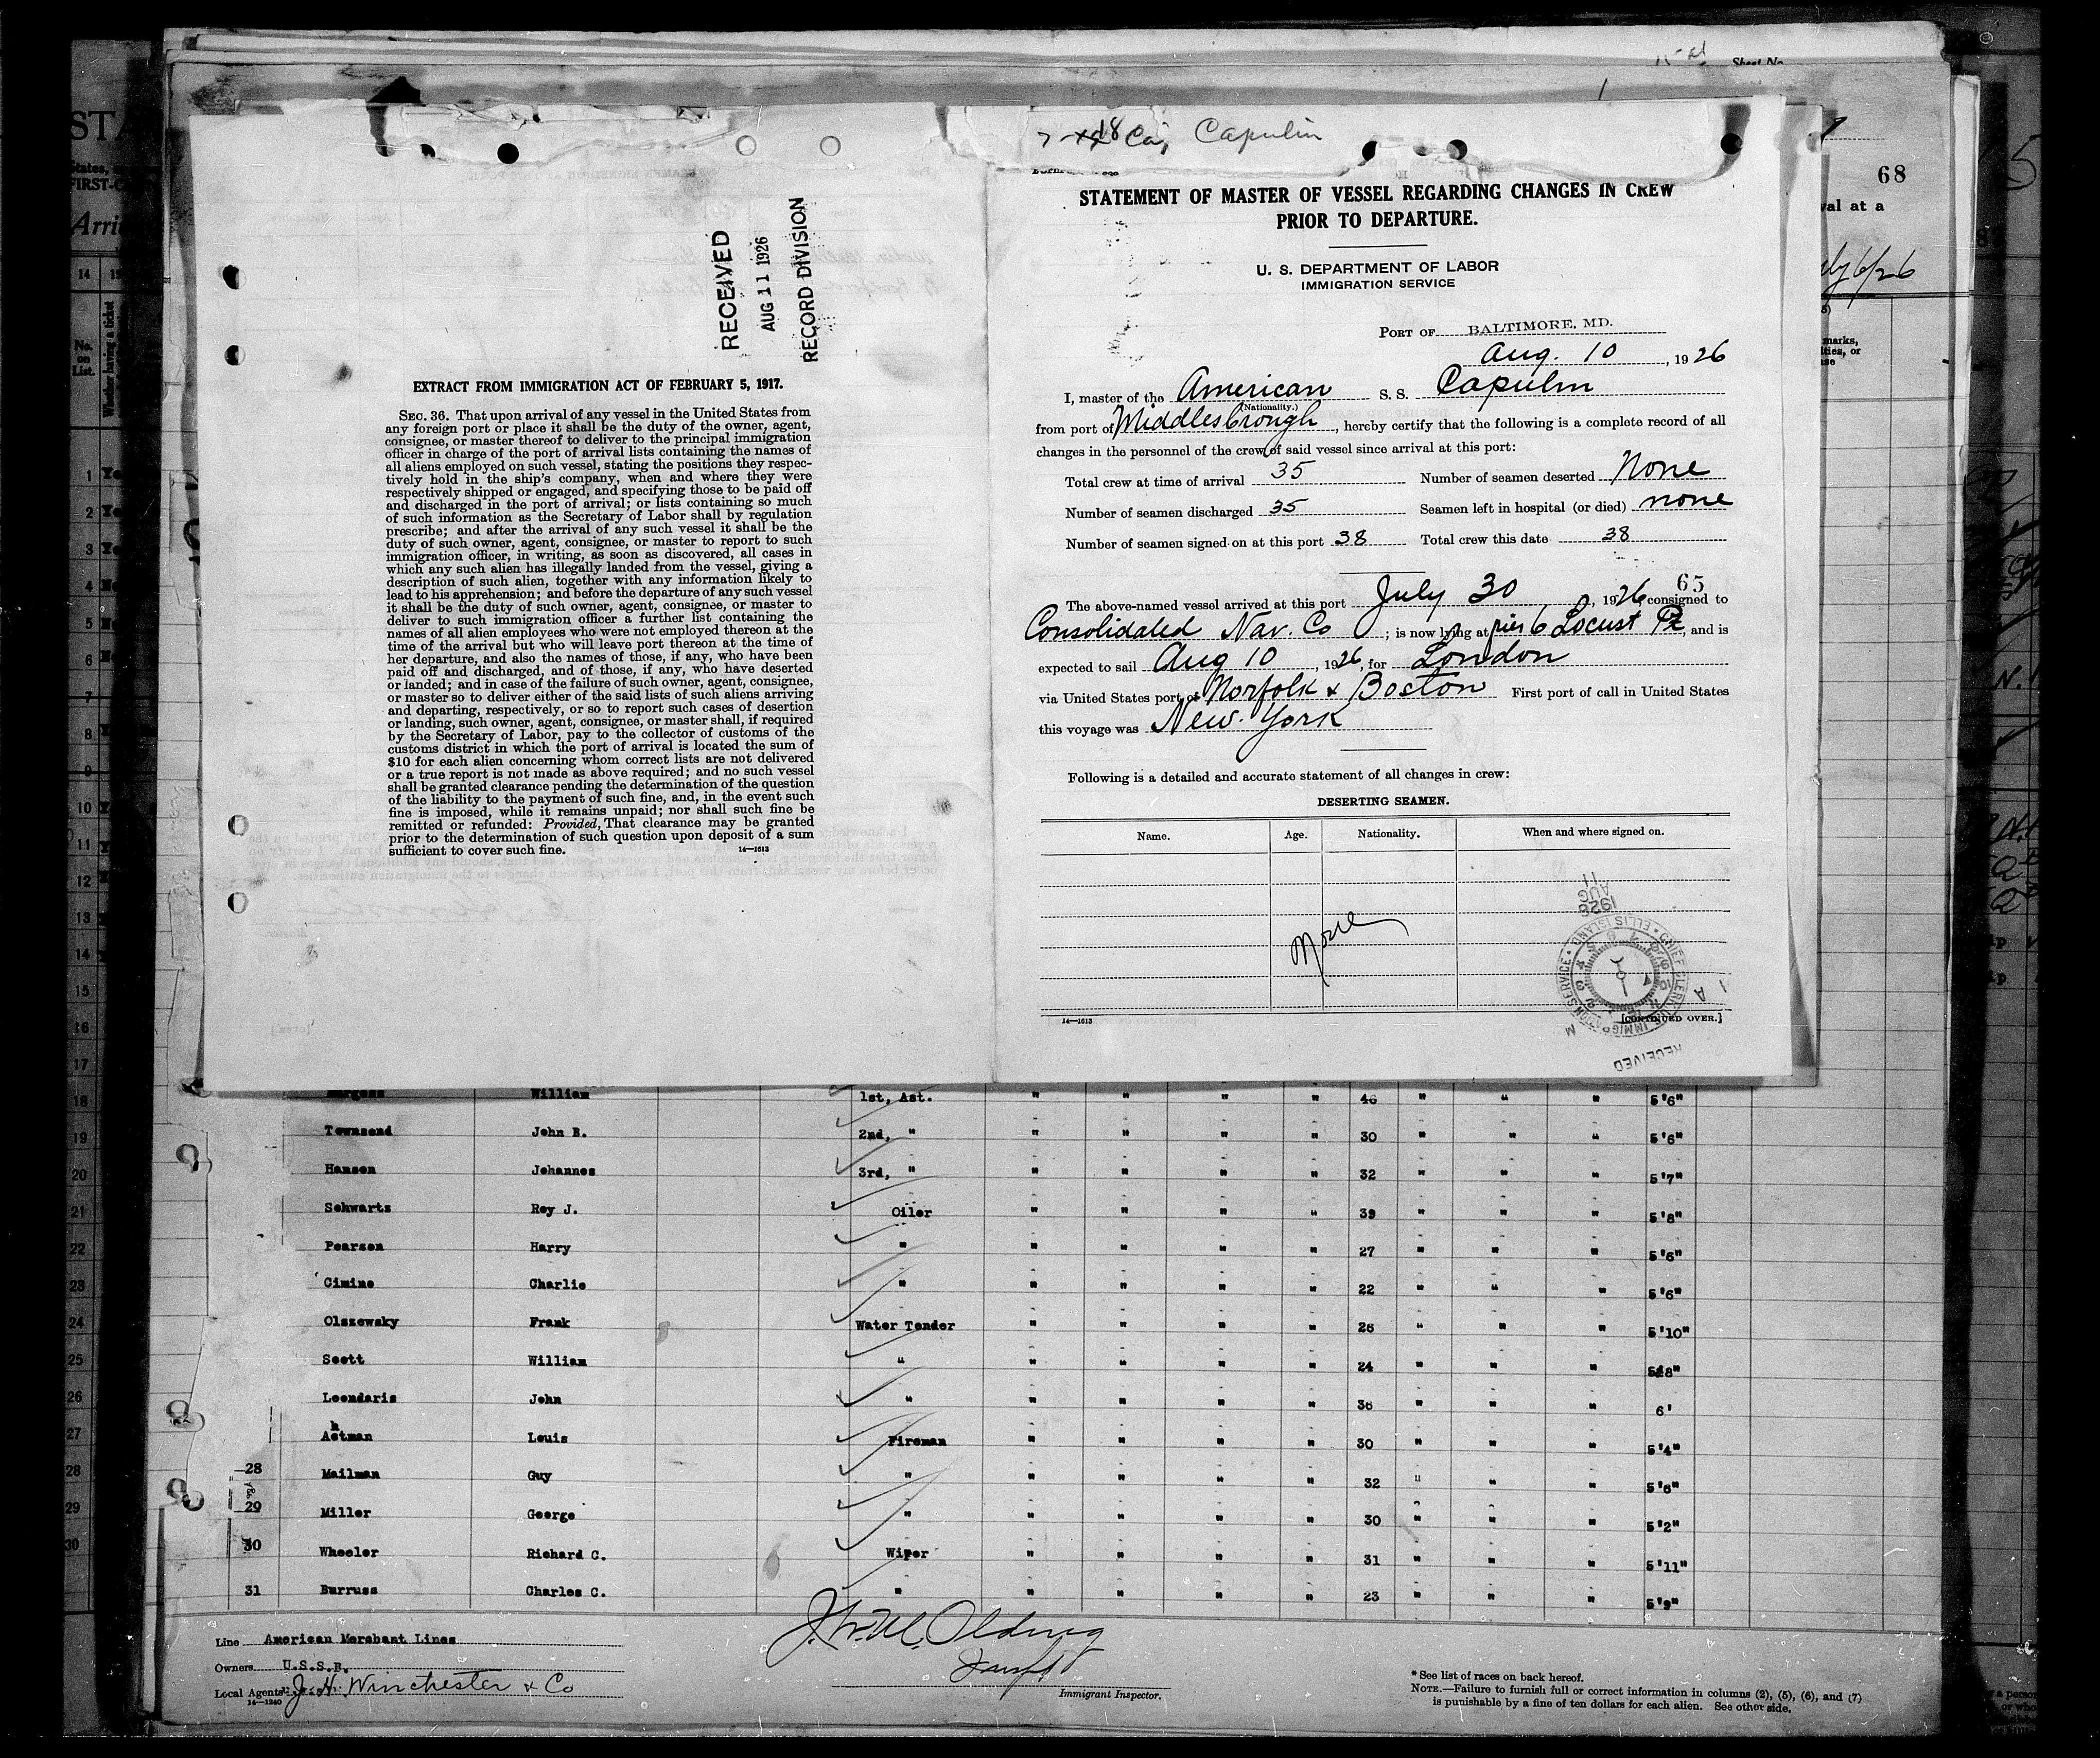 Sheet No.
68
val at a
7 18 Ca, Capulin
STATEMENT OF MASTER OF VESSEL REGARDING CHANGES IN CREW
PRIOR TO DEPARTURE.
U. S. DEPARTMENT OF LABOR
IMMIGRATION SERVICE
PORT OF BALTIMORE, MD.
Aug. 10, 1926
I, master of the American S. S. Capulin
(Nationality.)
from port of Middlesbrough, hereby certify that the following is a complete record of all
changes in the personnel of the crew of said vessel since arrival at this port:
Total crew at time of arrival 35 Number of seamen deserted None
Number of seamen discharged 35 Seamen left in hospital (or died) none
Number of seamen signed on at this port 38 Total crew this date 38
65
The above-named vessel arrived at this port July 30, 1926, consigned to
Consolidated Nav. Co; is now lying at pier 6 Locust Pt, and is
expected to sail Aug 10, 1926, for London
via United States port of Norfolk & Boston First port of call in United States
this voyage was New York
Following is a detailed and accurate statement of all changes in crew:
DESERTING SEAMEN.
Name. Age. Nationality. When and where signed on.
None
14—1613 [CONTINUED OVER.]
RECEIVED
AUG 11 1926
RECORD DIVISION
EXTRACT FROM IMMIGRATION ACT OF FEBRUARY 5, 1917.
SEC. 36. That upon arrival of any vessel in the United States from
any foreign port or place it shall be the duty of the owner, agent,
consignee, or master thereof to deliver to the principal immigration
officer in charge of the port of arrival lists containing the names of
all aliens employed on such vessel, stating the positions they respec-
tively hold in the ship's company, when and where they were
respectively shipped or engaged, and specifying those to be paid off
and discharged in the port of arrival; or lists containing so much
of such information as the Secretary of Labor shall by regulation
prescribe; and after the arrival of any such vessel it shall be the
duty of such owner, agent, consignee, or master to report to such
immigration officer, in writing, as soon as discovered, all cases in
which any such alien has illegally landed from the vessel, giving a
description of such alien, together with any information likely to
lead to his apprehension; and before the departure of any such vessel
it shall be the duty of such owner, agent, consignee, or master to
deliver to such immigration officer a further list containing the
names of all alien employees who were not employed thereon at the
time of the arrival but who will leave port thereon at the time of
her departure, and also the names of those, if any, who have been
paid off and discharged, and of those, if any, who have deserted
or landed; and in case of the failure of such owner, agent, consignee,
or master so to deliver either of the said lists of such aliens arriving
and departing, respectively, or so to report such cases of desertion
or landing, such owner, agent, consignee, or master shall, if required
by the Secretary of Labor, pay to the collector of customs of the
customs district in which the port of arrival is located the sum of
$10 for each alien concerning whom correct lists are not delivered
or a true report is not made as above required; and no such vessel
shall be granted clearance pending the determination of the question
of the liability to the payment of such fine, and, in the event such
fine is imposed, while it remains unpaid; nor shall such fine be
remitted or refunded: Provided, That clearance may be granted
prior to the determination of such question upon deposit of a sum
sufficient to cover such fine. 14—1613
18 Burgess William 1st, Ast. " " " " 46 " " " 5'6"
19 Townsend John B. 2nd, " " " " " 30 " " " 5'6"
20 Hansen Johannes 3rd, " " " " " 32 " " " 5'7"
21 Schwartz Roy J. Oiler " " " " 39 " " " 5'8"
22 Pearson Harry " " " " " 27 " " " 5'6"
23 Cimino Charlie " " " " " 22 " " " 5'6"
24 Olszewsky Frank Water Tender " " " " 26 " " " 5'10"
25 Scott William " " " " " 24 " " " 5'8"
26 Leondaris John " " " " " 36 " " " 6'
27 Ahtman Louis Fireman " " " " 30 " " " 5'4"
28 Mailman Guy " " " " " 32 " " " 5'6"
29 Miller George " " " " " 30 " " " 5'2"
30 Wheeler Richard C. Wiper " " " " 31 " " " 5'11"
31 Burruss Charles C. " " " " " 23 " " " 5'9"
Line American Merchant Lines
Owners U.S.S.B.
Local Agents J. H. Winchester & Co
14—1240
Immigrant Inspector.
* See list of races on back hereof.
NOTE.—Failure to furnish full or correct information in columns (2), (5), (6), and (7)
is punishable by a fine of ten dollars for each alien. See other side.